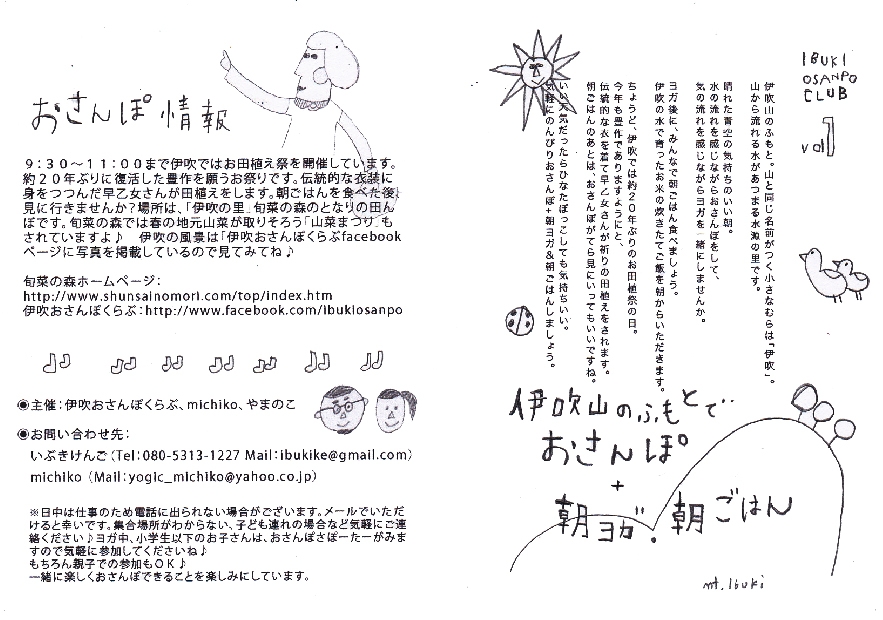 おさんぽ情報
９：３０～１１：００まで伊吹ではお田植え祭を開催しています。
約２０年ぶりに復活した豊作を願うお祭りです。伝統的な衣装に
身をつつんだ早乙女さんが田植えをします。朝ごはんを食べた後
見に行きませんか？場所は、「伊吹の里」旬菜の森のとなりの田ん
ぼです。旬菜の森では春の地元山菜が取りそろう「山菜まつり」も
されていますよ♪　伊吹の風景は「伊吹おさんぽくらぶfacebook
ページに写真を掲載しているので見てみてね♪
旬菜の森ホームページ：
http://www.shunsainomori.com/top/index.htm
伊吹おさんぽくらぶ：http://www.facebook.com/ibukiosanpo
◉主催：伊吹おさんぽくらぶ、michiko、やまのこ
◉お問い合わせ先：
いぶきけんご（Tel：080-5313-1227 Mail：ibukike@gmail.com）
michiko（Mail：yogic_michiko@yahoo.co.jp）
※日中は仕事のため電話に出られない場合がございます。メールでいただ
けると幸いです。集合場所がわからない、子ども連れの場合など気軽にご連
絡ください♪ヨガ中、小学生以下のお子さんは、おさんぽさぽーたーがみま
すので気軽に参加してくださいね♪
もちろん親子での参加もＯＫ♪
一緒に楽しくおさんぽできることを楽しみにしています。
IBUKI
OSANPO
CLUB
vol 1
伊吹山のふもと。山と同じ名前がつく小さなむらは「伊吹」。
山から流れる水があつまる水源の里です。
晴れた青空の気持ちのいい朝。
水の流れを感じながらおさんぽをして、
気の流れを感じながらヨガを一緒にしませんか。
ヨガ後に、みんなで朝ごはん食べましょう。
伊吹の水で育ったお米の炊きたてご飯を朝からいただきます。
ちょうど、伊吹では約２０年ぶりのお田植祭の日。
今年も豊作でありますようにと、
伝統的な衣を着て早乙女さんが祈りの田植えをされます。
朝ごはんのあとは、おさんぽがてら見にいってもいいですね。
いい天気だったらひなたぼっこしても気持ちいい。
気軽にのんびりおさんぽ+朝ヨガ&朝ごはんしましょう。
伊吹山のふもとで
おさんぽ
+
朝ヨガ・朝ごはん
mt. Ibuki